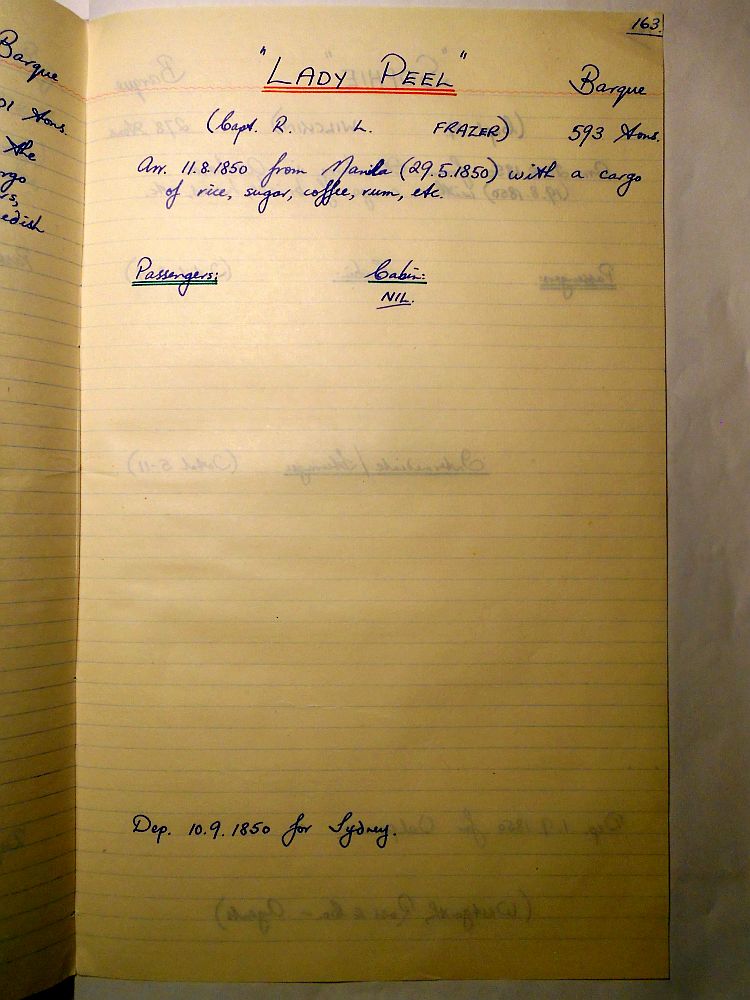 163.
"LADY PEEL" Barque
(Capt. R. L. FRAZER) 593 tons.
Arr. 11.8.1850 from Manila (29.5.1850) with a cargo
of rice, sugar, coffee, rum, etc.
Passengers: Cabin:
NIL.
Dep. 10.9.1850 for Sydney.
Barque
01 tons.
the
rgo
rs,
edish